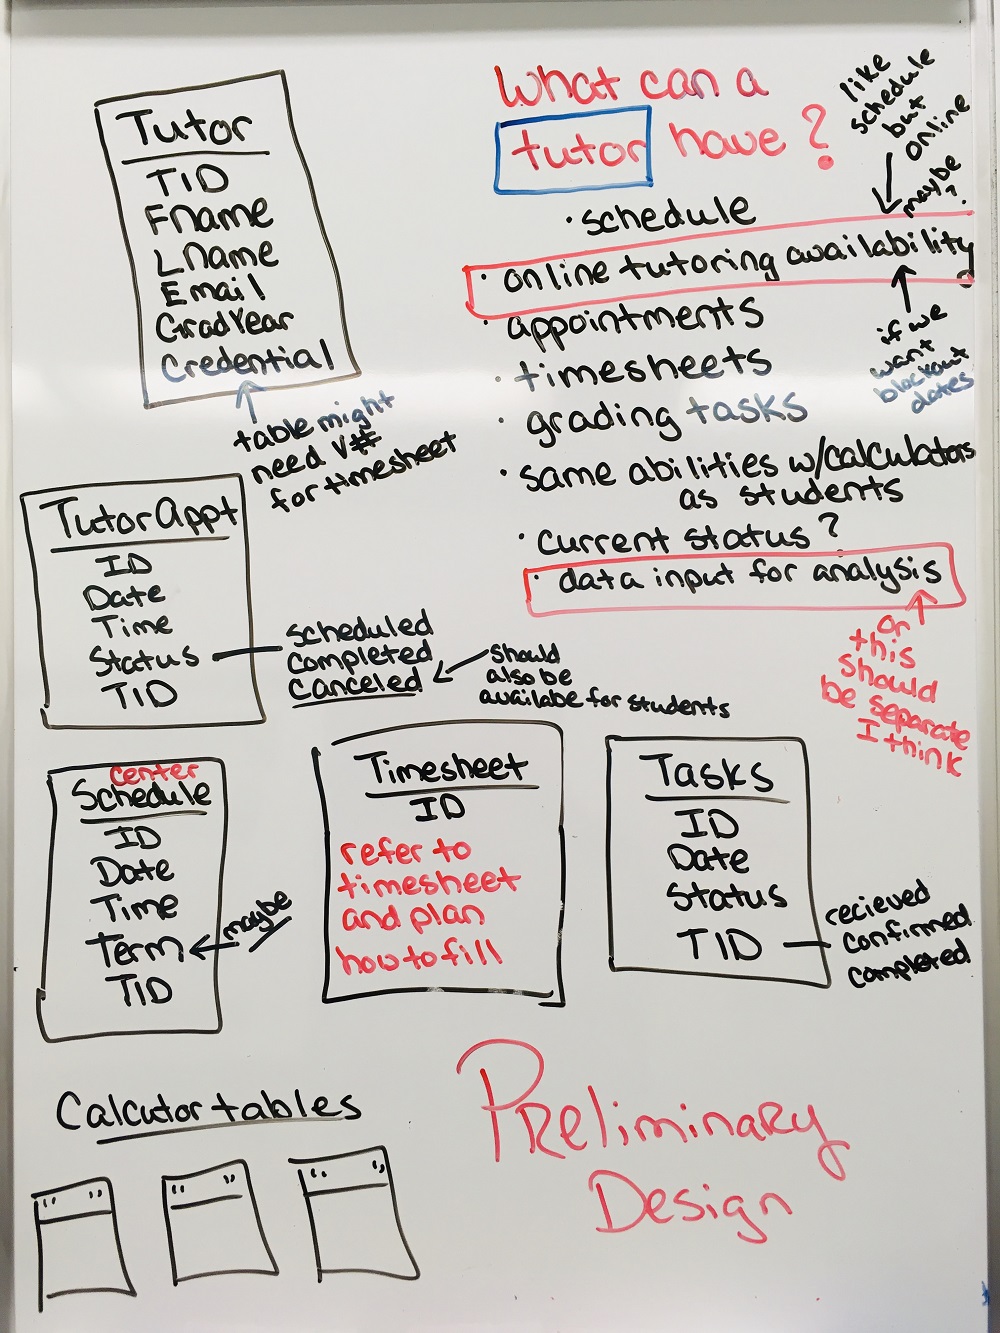 Tutor
TID
FName
LName
Email
GradYear
Credential
table might
need V#
for timesheet
What can a
tutor have?
like
schedule
but
online
maybe?
• schedule
• online tutoring availability
if we
want
blockout
dates
• appointments
• timesheets
• grading tasks
• same abilities w/calculators
as students
• current status?
• data input for analysis
or
this
should
be separate
I think
TutorAppt
ID
Date
Time
Status
TID
scheduled
completed
canceled
should
also be
availabe for students
center
Schedule
ID
Date
Time
Term
TID
maybe
Timesheet
ID
refer to
timesheet
and plan
how to fill
Tasks
ID
Date
Status
TID
recieved
confirmed
completed
Calcutor tables
" "
" "
" "
Preliminary
Design